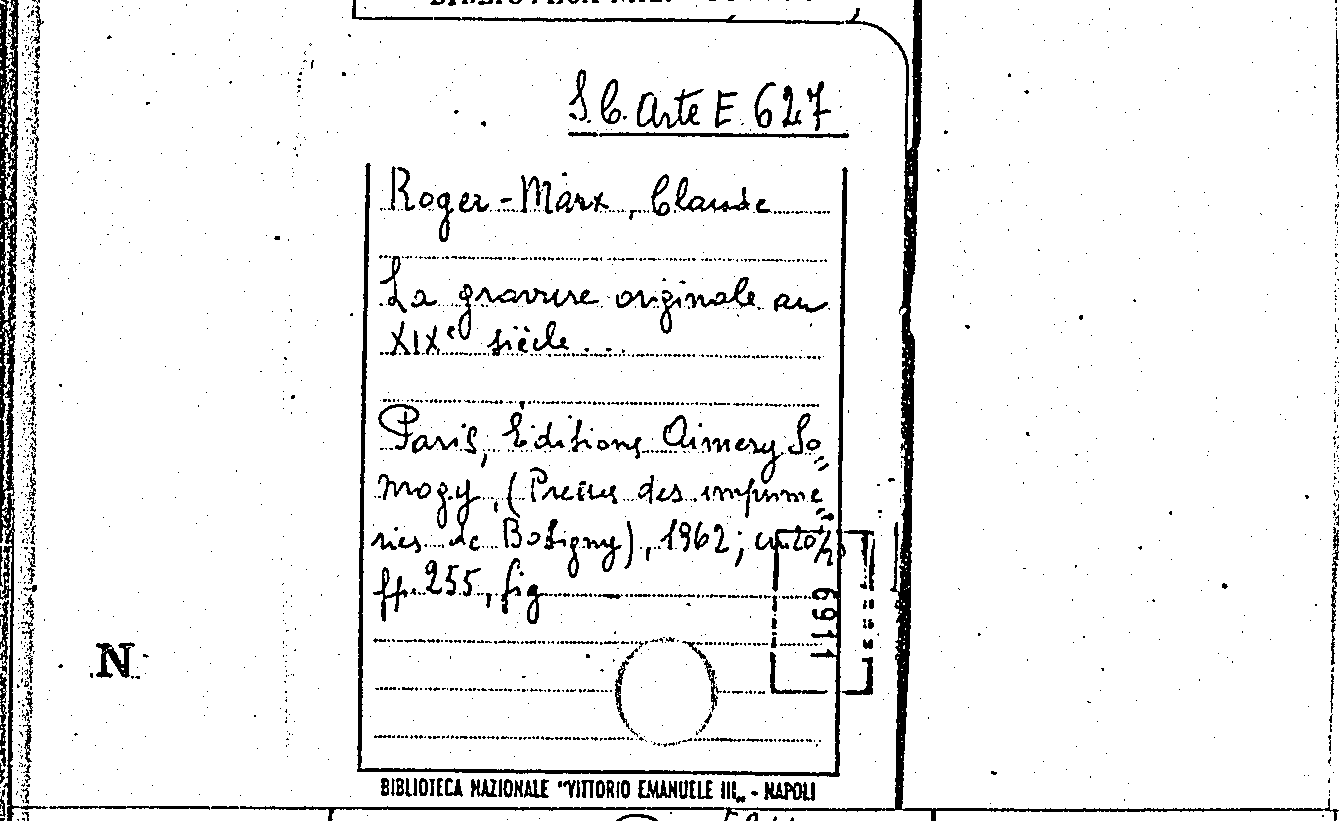 S.C. Arte E 627
Roger-Marx, Claude
La gravure originale au
XIXe siècle...
Paris, Éditions Aimery So„
mogy, (Presses des imprime„
ries de Bobigny), 1962; in
pp. 255, fig
6911
N
BIBLIOTECA NAZIONALE "VITTORIO EMANUELE III„ - NAPOLI